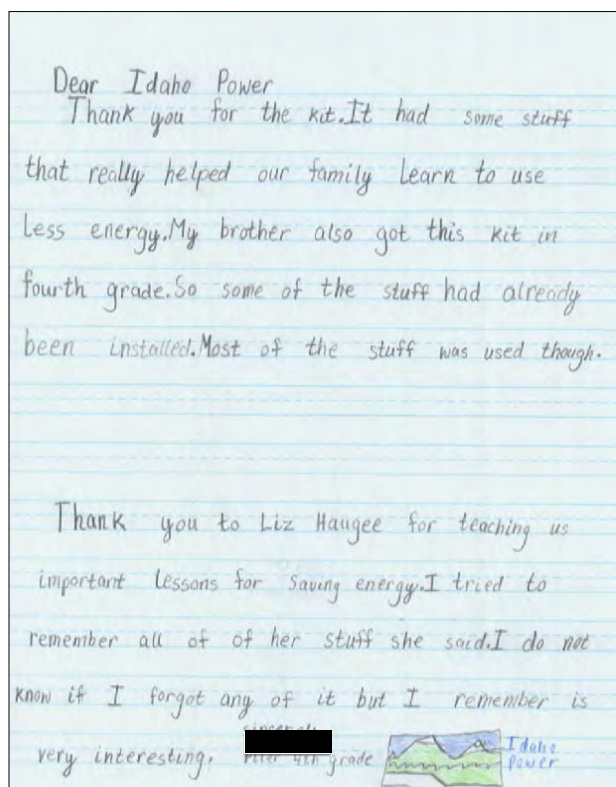 Dear Idaho Power
Thank you for the kit.It had some stuff
that really helped our family Learn to use
Less energy.My brother also got this kit in
fourth grade.So some of the stuff had already
been installed.Most of the stuff was used though.
Thank you to Liz Haugee for teaching us
important Lessons for saving energy.I tried to
remember all of of her stuff she said.I do not
know if I forgot any of it but I remember is
very interesting.
4th grade
Idaho
Power